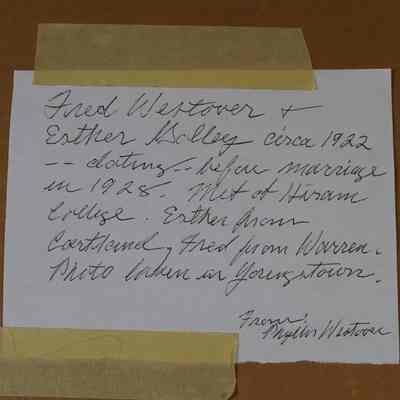 Fred Westover +
Esther Golley circa 1922
-- dating -- before marriage
in 1928. Met at Hiram
College. Esther from
Cortland, Fred from Warren.
Photo taken in Youngstown.
From:
Phyllis Westover